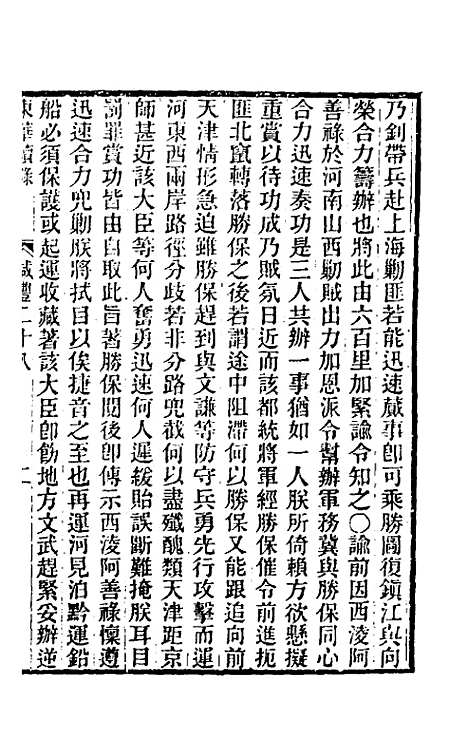 乃釗帶兵赴上海勦匪若能迅速蕆事卽可乘勝圖復鎭江與向
榮合力籌辦也將此由六百里加緊諭令知之〇諭前因西淩阿
善祿於河南山西勦賊出力加恩派令幫辦軍務冀與勝保同心
合力迅速奏功是三人共辦一事猶如一人朕所倚賴方欲懸擬
重賞以待功成乃賊氛日近而該都統將軍經勝保催令前進扼
匪北竄轉落勝保之後若謂途中阻滯何以勝保又能跟追向前
天津情形急迫雖勝保趕到與文謙等防守兵勇先行攻擊而運
河東西兩岸路徑分歧若非分路兜截何以盡殲醜類天津距京
師甚近該大臣等何人奮勇迅速何人遲緩貽誤斷難掩朕耳目
罰罪賞功皆由自取此旨著勝保閱後卽傳示西淩阿善祿懍遵
迅速合力兜勦朕將拭目以俟捷音之至也再運河見泊黔運鉛
船必須保護或起運收藏著該大臣卽飭地方文武趕緊妥辦逆
東華續錄 咸豐二十八 二